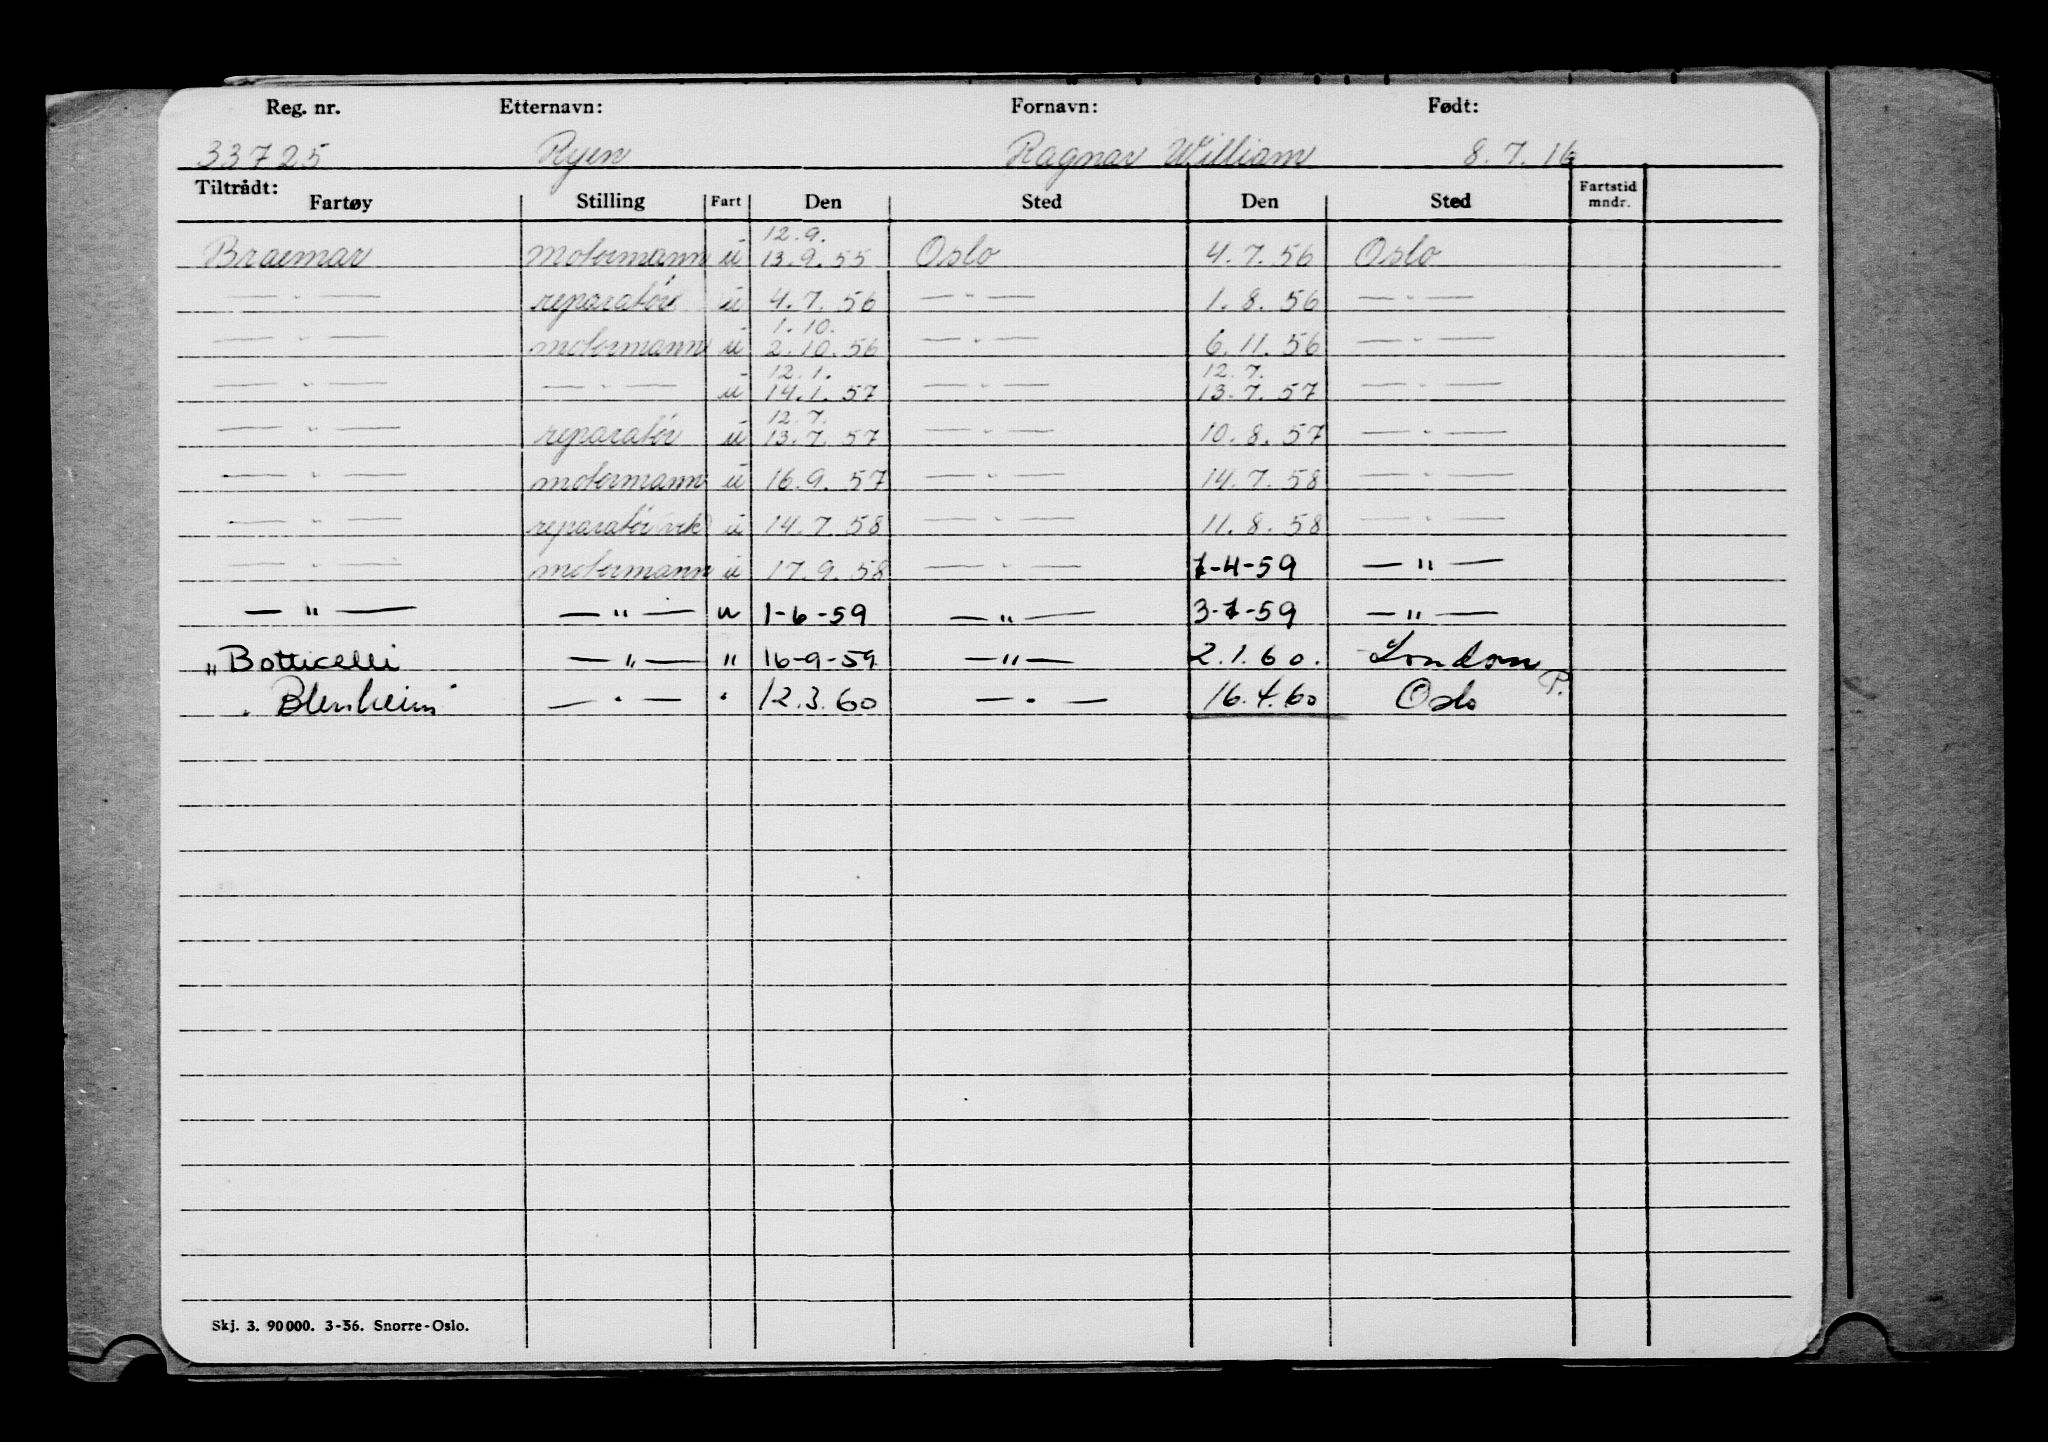 Reg. nr. Etternavn: Fornavn: Født:
33725 Ryen Ragnar William 8.7.16
Tiltrådt:
Fartøy Stilling Fart Den Sted Den Sted Fartstid mndr.
12.9.
Braemar motormann u 13.9.55 Oslo 4.7.56 Oslo
— " — reparatør u 4.7.56 — " — 1.8.56 — " —
1.10.
— " — motormann u 2.10.56 — " — 6.11.56 — " —
12.1. 12.7.
— " — — " — u 14.1.57 — " — 13.7.57 — " —
12.7.
— " — reparatør u 13.7.57 — " — 10.8.57 — " —
— " — motormann u 16.9.57 — " — 14.7.58 — " —
— " — reparatør (vik) u 14.7.58 — " — 11.8.58 — " —
— " — motormann u 17.9.58 — " — 1-4-59 — " —
— " — — " — u 1-6-59 — " — 3-7-59 — " —
"Botticelli — " — " 16-9-59 — " — 2.1.60. London
"Blenheim" — " — " 12.3.60 — " — 16.4.60 Oslo P.
Skj. 3. 90000. 3-56. Snorre-Oslo.